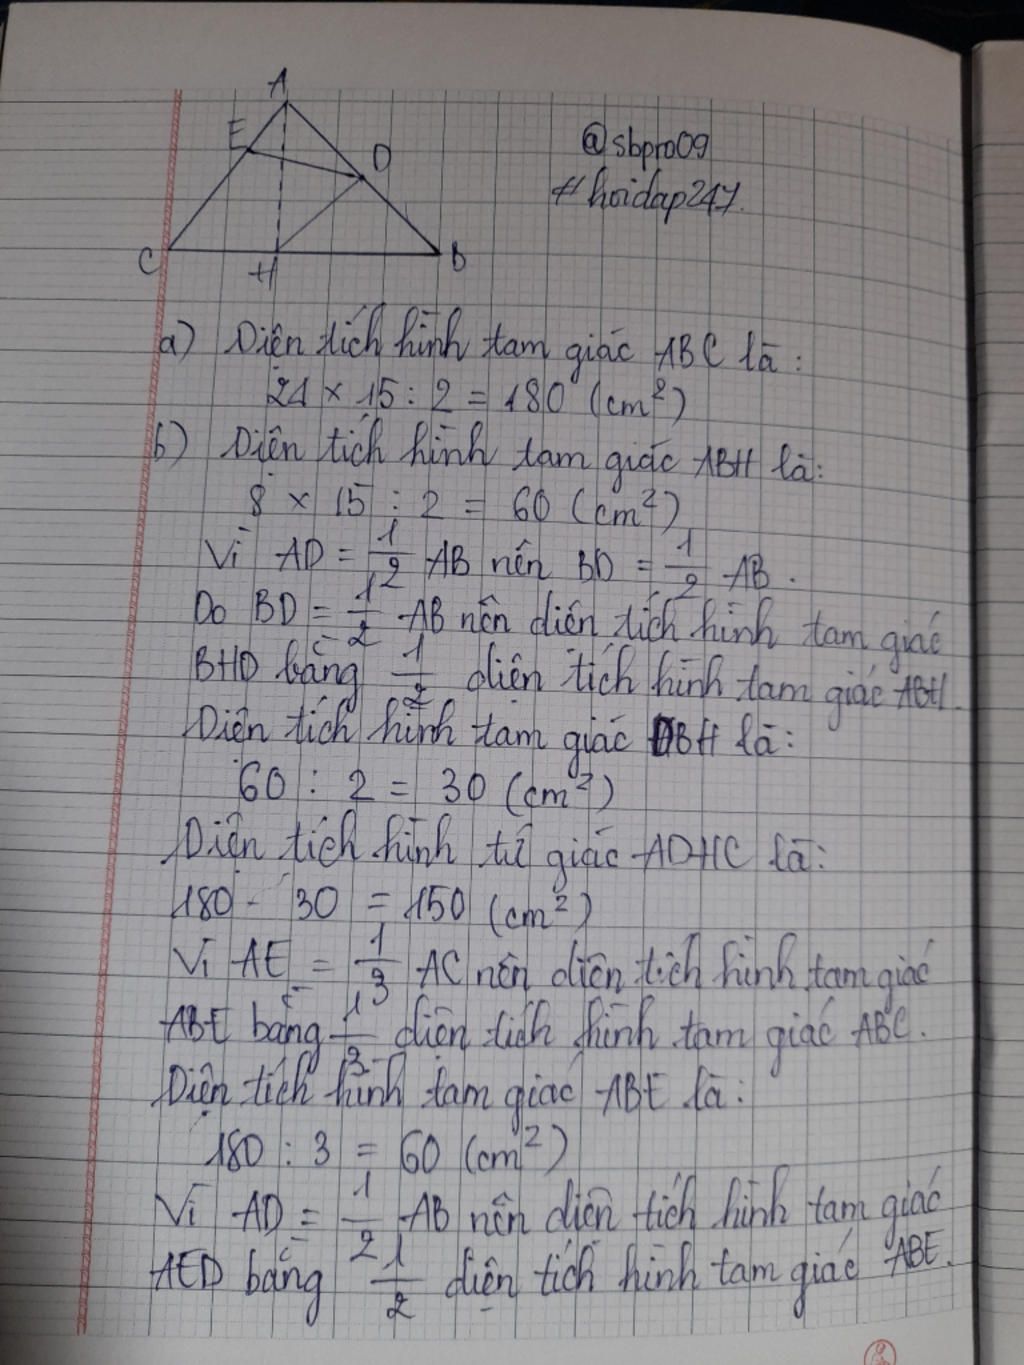 A
E
D
C
H
B
@sbpro09
#hoidap247.
a) Diện tích hình tam giác ABC là:
24 × 15 : 2 = 180 (cm²)
b) Diện tích hình tam giác ABH là:
8 × 15 : 2 = 60 (cm²)
Vì AD = 1/2 AB nên BD = 1/2 AB.
Do BD = 1/2 AB nên diện tích hình tam giác
BHD bằng 1/2 diện tích hình tam giác ABH.
Diện tích hình tam giác DBH là:
60 : 2 = 30 (cm²)
Diện tích hình tứ giác ADHC là:
180 - 30 = 150 (cm²)
Vì AE = 1/3 AC nên diện tích hình tam giác
ABE bằng 1/3 diện tích hình tam giác ABC.
Diện tích hình tam giác ABE là:
180 : 3 = 60 (cm²)
Vì AD = 1/2 AB nên diện tích hình tam giác
AED bằng 1/2 diện tích hình tam giác ABE.